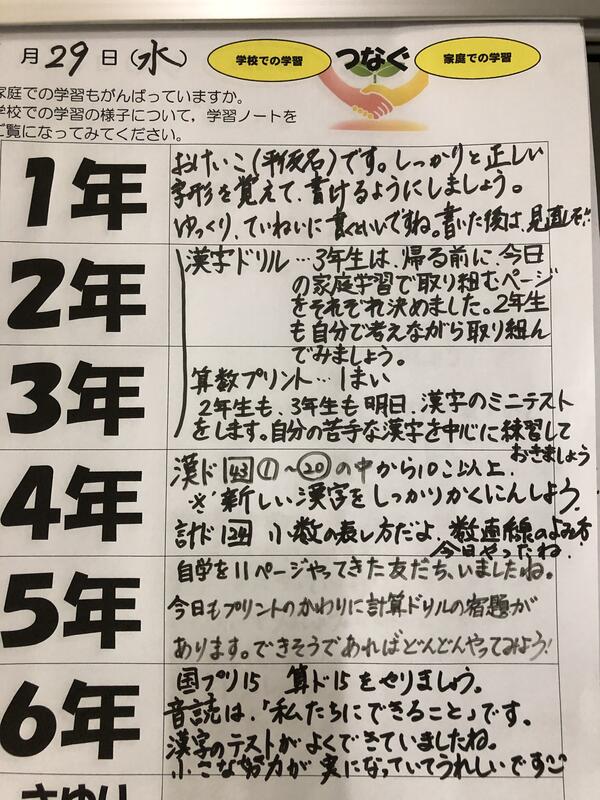 月29日(水)
学校での学習
つなぐ
家庭での学習
家庭での学習もがんばっていますか。
学校での学習の様子について,学習ノートを
ご覧になってみてください。
1年
おけいこ(平仮名)です。しっかりと正しい
字形を覚えて、書けるようにしましょう。
ゆっくり、ていねいに書くといいですね。書いた後は、見直しを!!
2年
漢字ドリル…3年生は、帰る前に、今日
の家庭学習で取り組むページ
をそれぞれ決めました。2年生
も自分で考えながら取り組ん
でみましょう。
3年
算数プリント…1まい
2年生も、3年生も明日、漢字のミニテスト
をします。自分の苦手な漢字を中心に練習して
おきましょう
4年
漢ド43①~⑳の中から10こ以上.
※新しい漢字をしっかりかくにんしよう.
計ド24 小数の表し方だよ、数直線のよみ方
今日やったね.
5年
自学を11ページやってきた友だち、いましたね。
今日もプリントのかわりに計算ドリルの宿題が
あります。できそうであればどんどんやってみよう!
6年
国プリ15 算ド15をやりましょう。
音読は、「私たちにできること」です。
漢字のテストがよくできていましたね。
小さな努力が実になっていてうれしいです
さゆり